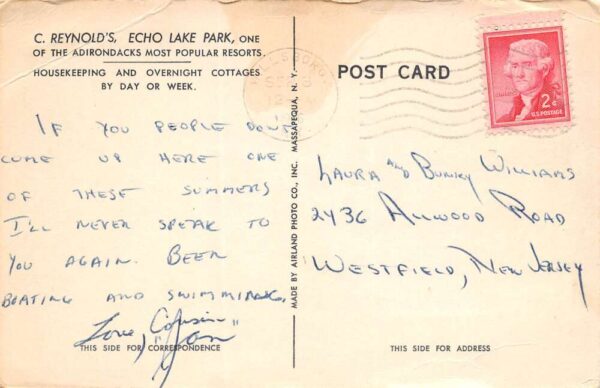 C. REYNOLD'S, ECHO LAKE PARK, ONE
OF THE ADIRONDACKS MOST POPULAR RESORTS.
HOUSEKEEPING AND OVERNIGHT COTTAGES
BY DAY OR WEEK.
IF YOU PEOPLE DON'T
COME UP HERE ONE
OF THESE SUMMERS
I'LL NEVER SPEAK TO
YOU AGAIN. BEEN
BOATING AND SWIMMING.
Love, Cousin
"Jon"
THIS SIDE FOR CORRESPONDENCE
MADE BY AIRLAND PHOTO CO., INC. MASSAPEQUA, N. Y.
POST CARD
2¢
U.S. POSTAGE
LAURA AND WILLIAMS
2436 ALLWOOD ROAD
WESTFIELD, NEW JERSEY
THIS SIDE FOR ADDRESS